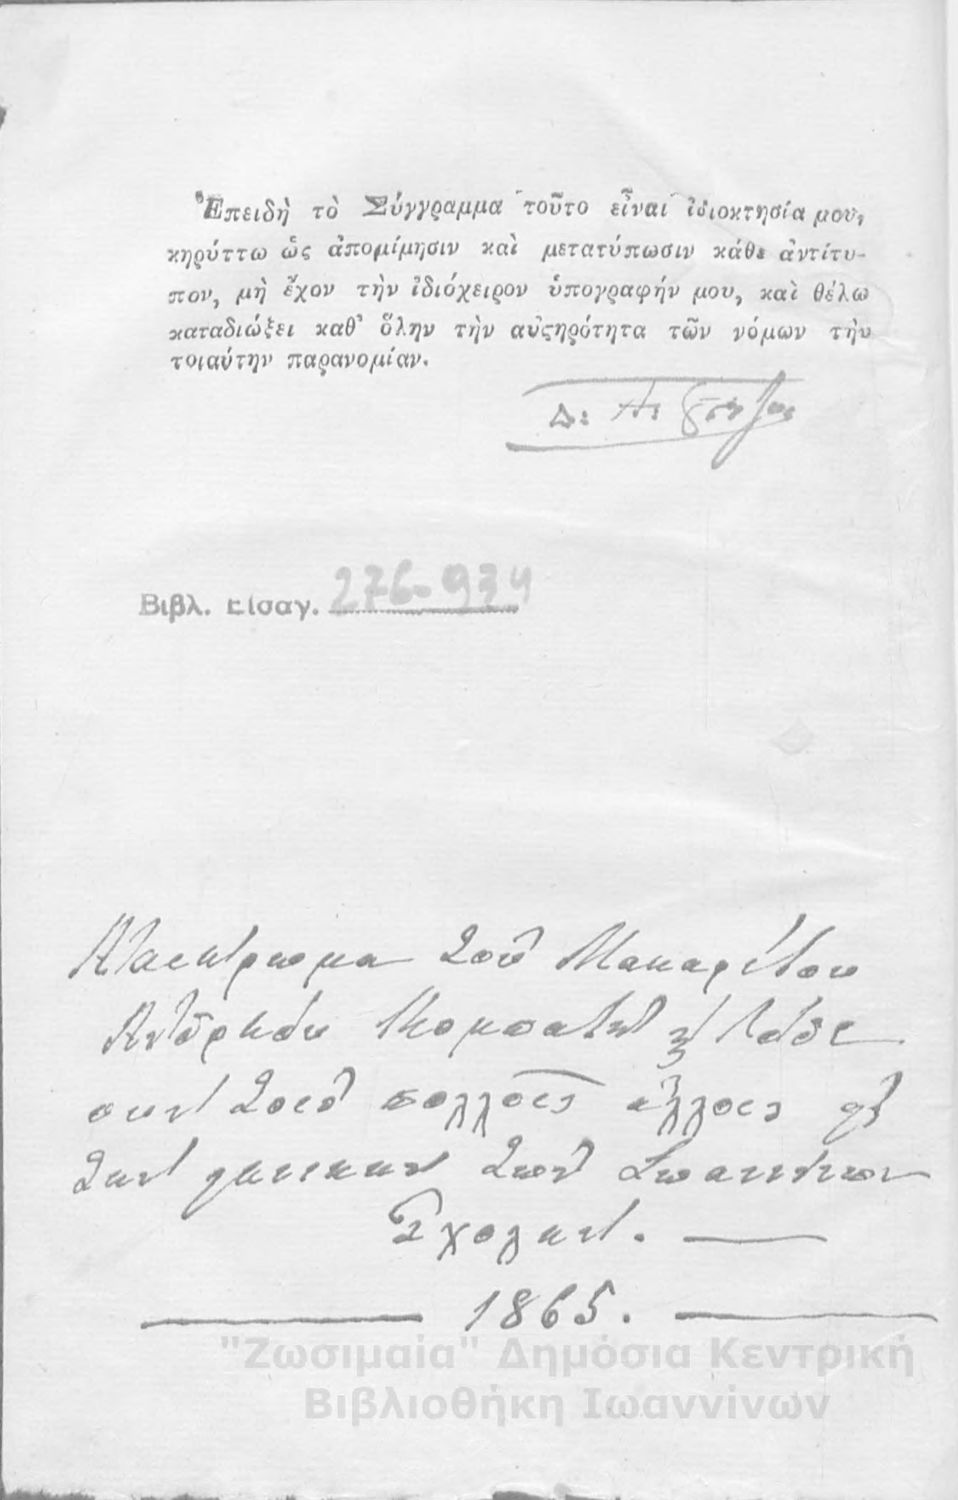 Ἐπειδὴ τὸ Σύγγραμμα τοῦτο εἶναι ἰδιοκτησία μου,
κηρύττω ὡς ἀπομίμησιν καὶ μετατύπωσιν κάθε ἀντίτυ-
πον, μὴ ἔχον τὴν ἰδιόχειρον ὑπογραφήν μου, καὶ θέλω
καταδιώξει καθ' ὅλην τὴν αὐϛηρότητα τῶν νόμων τὴν
τοιαύτην παρανομίαν.
Βιβλ. Εἰσαγ. 276-934
τοῦ Μακαρίτου
τόδε
σὺν τοῖς πολλοῖς ἄλλοις
τὴν τῶν Ἰωαννίνων
Σχολήν.
1865.
"Ζωσιμαία" Δημόσια Κεντρική
Βιβλιοθήκη Ιωαννίνων